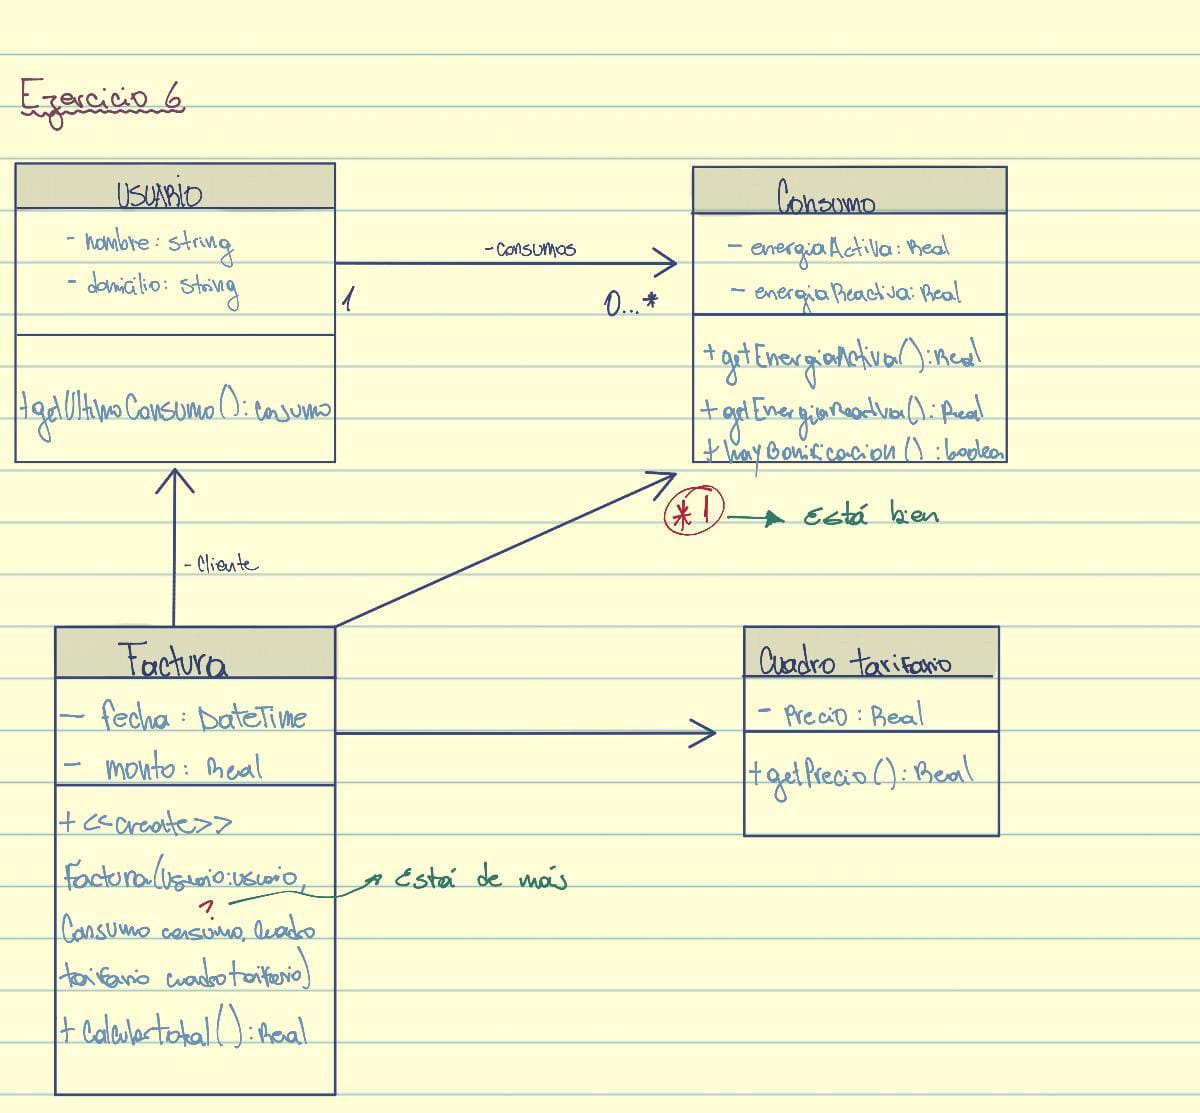 Ejercicio 6
USUARIO
- nombre: string
- domicilio: string
+getUltimoConsumo(): consumo
- consumos
1
0...*
Consumo
- energiaActiva: Real
- energiaReactiva: Real
+ getEnergiaActiva(): Real
+ getEnergiaReactiva(): Real
+ hayBonificacion(): boolean
*1 → Está bien
- Cliente
Factura
- fecha: DateTime
- monto: Real
+ <<create>>
Factura(Usuario:usuario,
→ Está de más
?
Consumo consumo, Cuadro
tarifario cuadrotarifario)
+ CalcularTotal(): Real
Cuadro tarifario
- Precio: Real
+ getPrecio(): Real